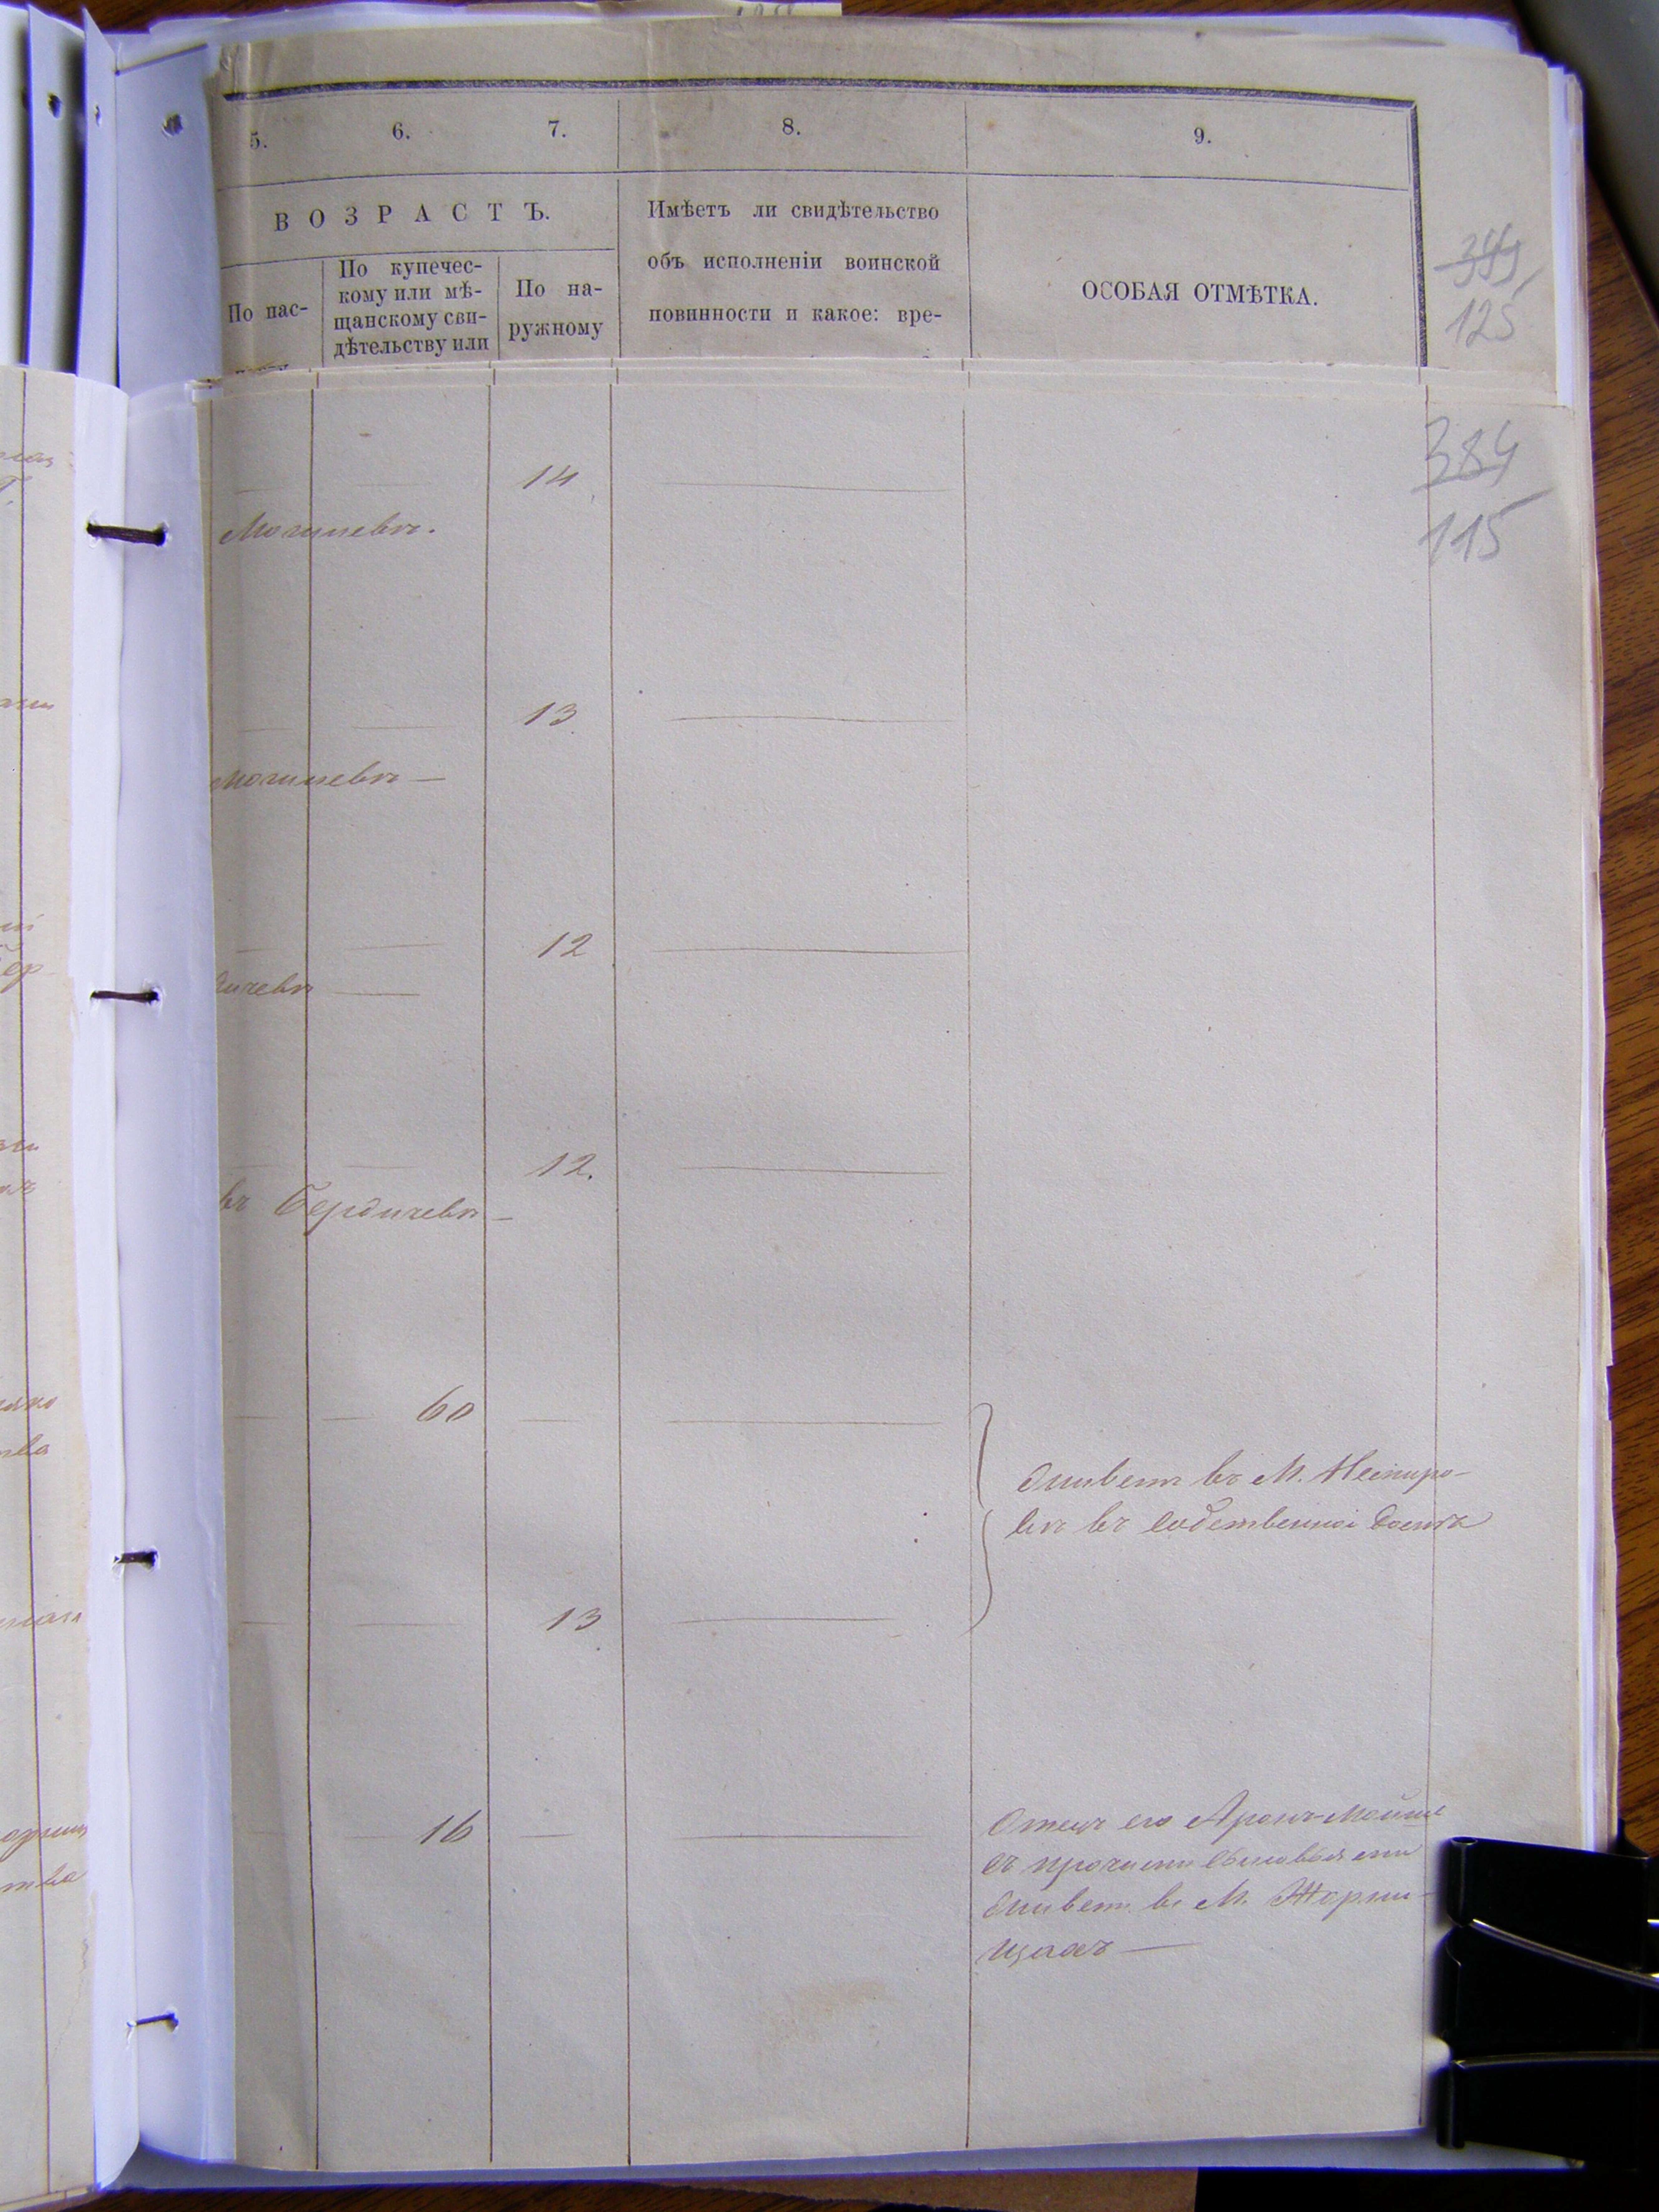 5. 6. 7. 8. 9.
ВОЗРАСТЪ.
По пас-
По купечес-
кому или мѣ-
щанскому сви-
дѣтельству или
По на-
ружному
Имѣетъ ли свидѣтельство
объ исполненіи воинской
повинности и какое: вре-
ОСОБАЯ ОТМѢТКА.
399
125
384
115
14
Могилевѣ.
13
Могилевѣ —
12
дичевѣ —
12.
въ Бердичевѣ —
60
живетъ въ М. Немиро-
вѣ въ собственномъ домѣ
13
16
Отецъ его Аронъ-Мойше
съ прочими сыновьями
живетъ въ М. Жорни-
щахъ —